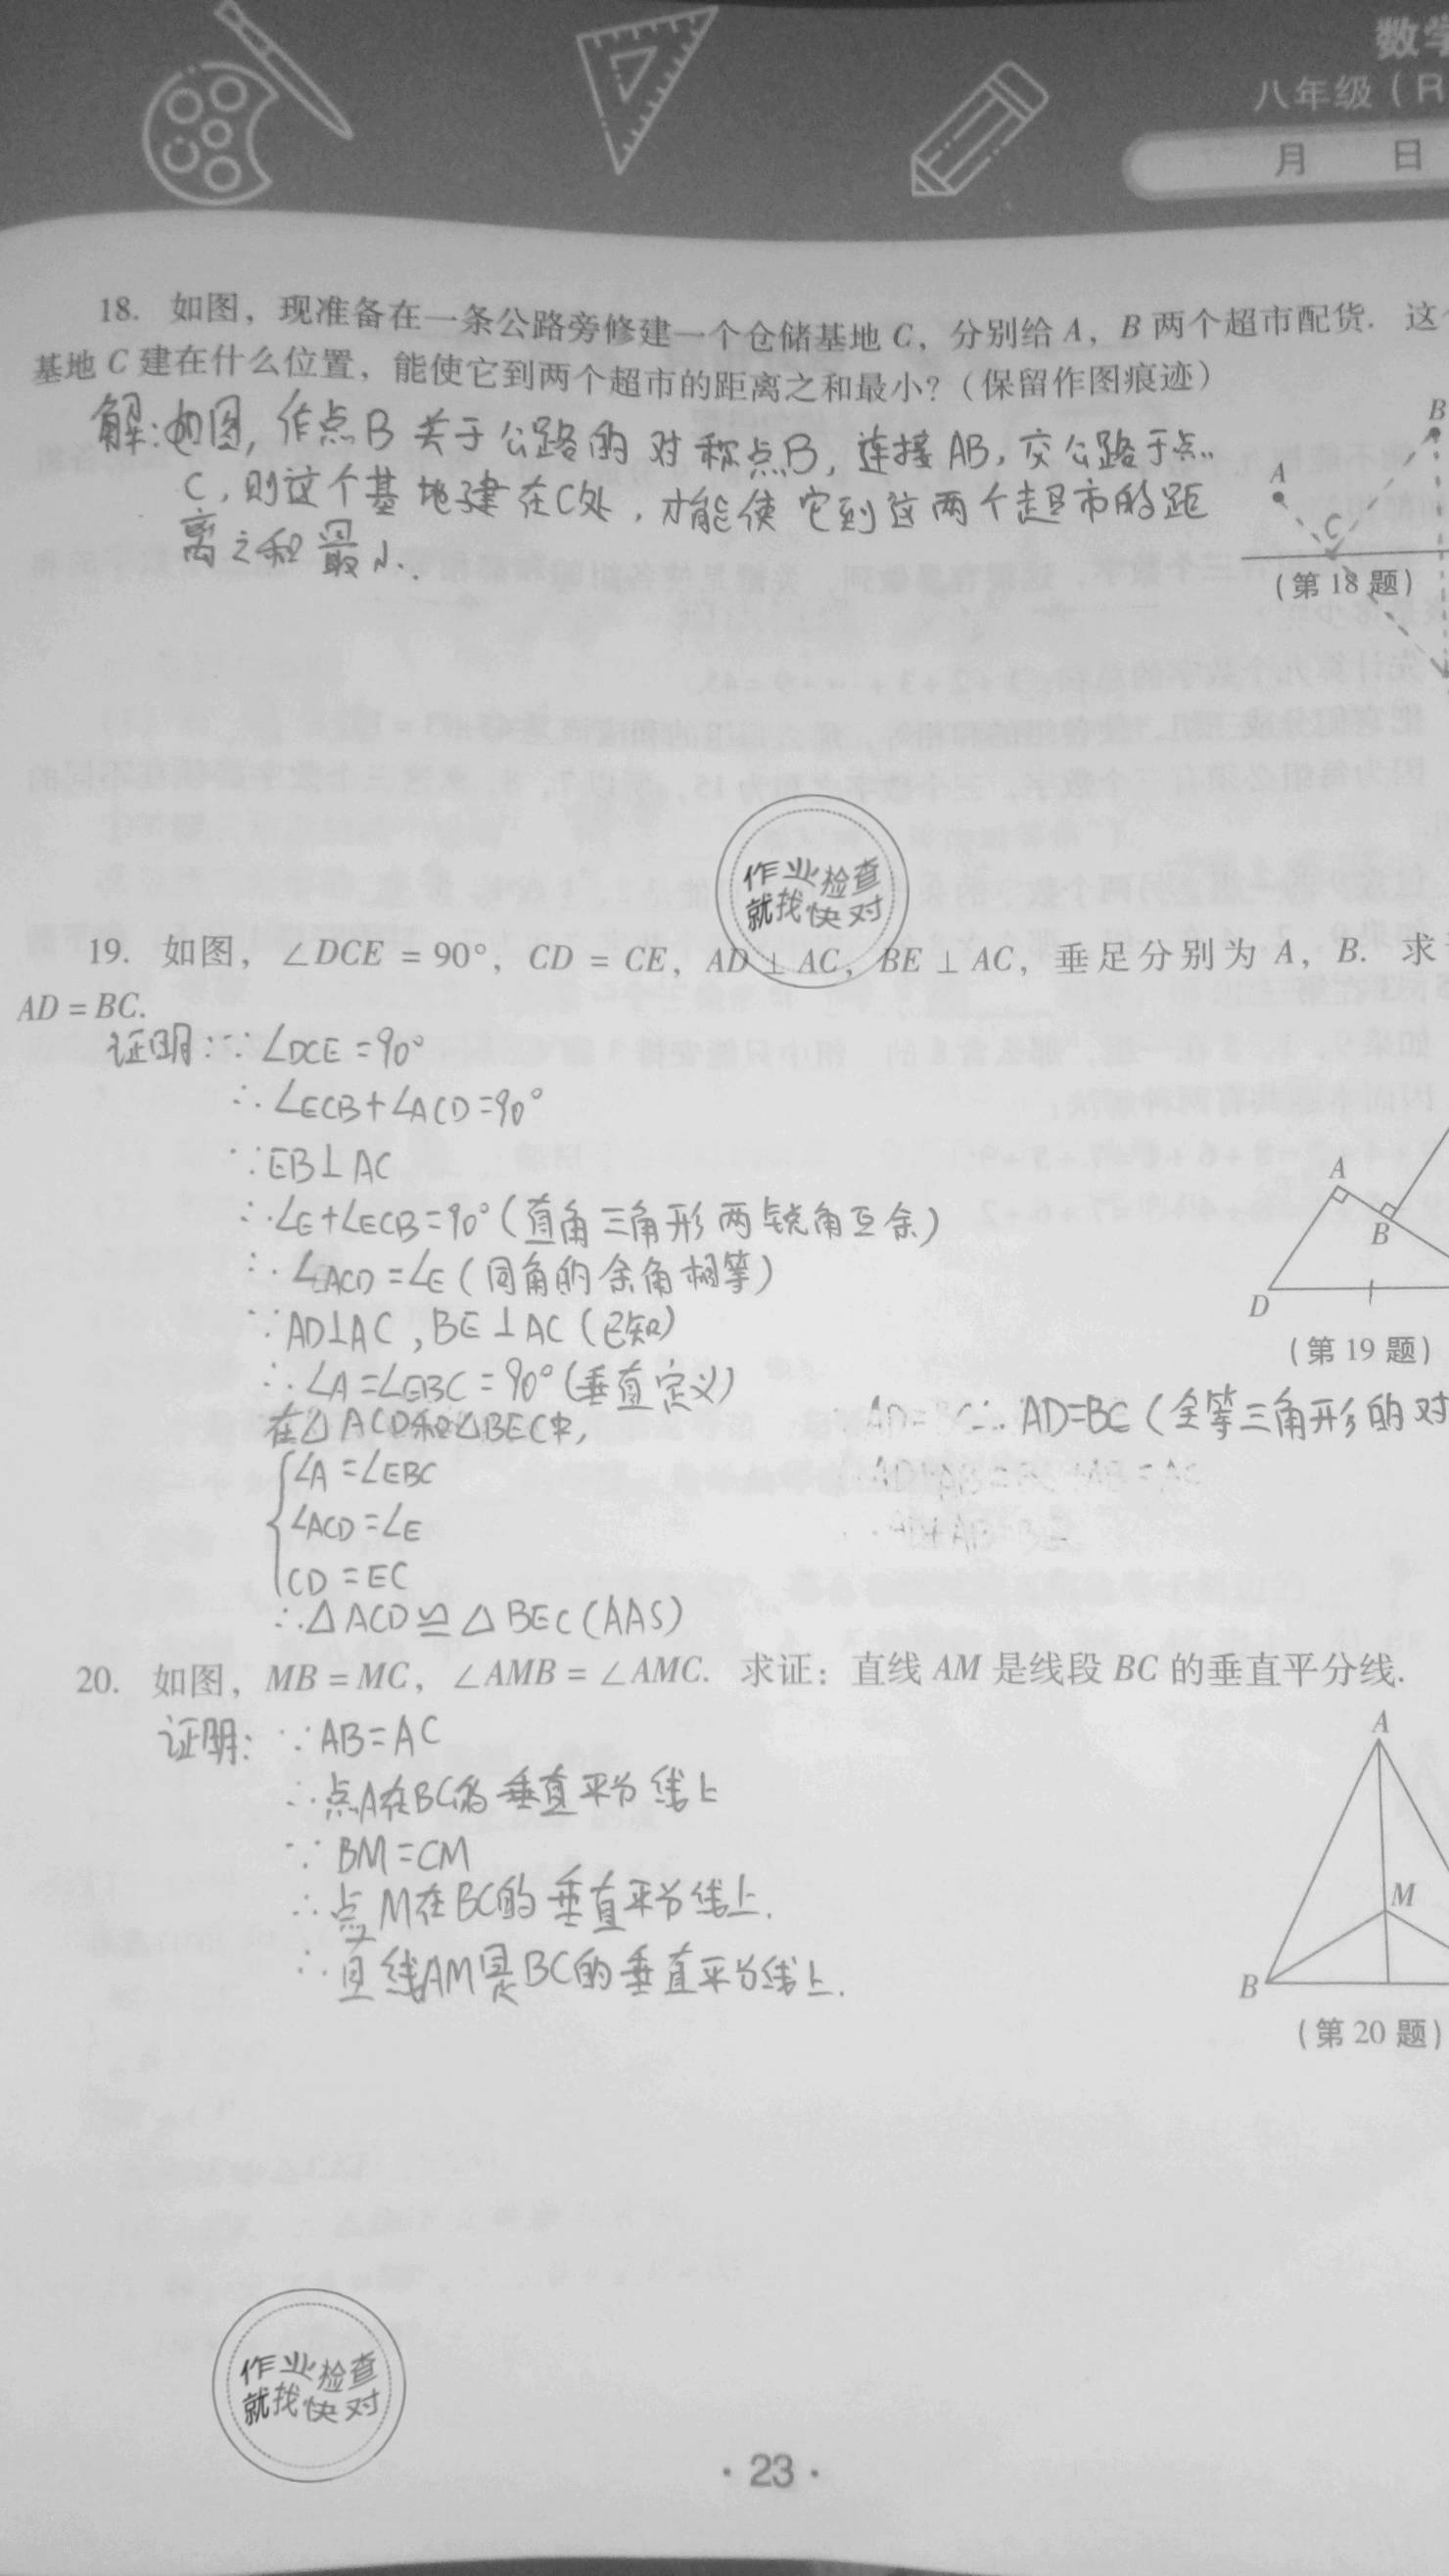 数学
八年级（R
月 日
18. 如图，现准备在一条公路旁修建一个仓储基地 C，分别给 A，B 两个超市配货．这个
基地 C 建在什么位置，能使它到两个超市的距离之和最小？（保留作图痕迹）
解:如图, 作点B 关于公路的对称点B, 连接AB, 交公路于点
C, 则这个基地建在C处, 才能使它到这两个超市的距
离之和最小.
B
A
C
（第 18 题）
作业检查
就找快对
19. 如图，∠DCE = 90°，CD = CE，AD ⊥ AC，BE ⊥ AC，垂足分别为 A，B．求
AD = BC.
证明:∵∠DCE=90°
∴∠ECB+∠ACD=90°
∵EB⊥AC
∴∠E+∠ECB=90°(直角三角形两锐角互余)
∴∠ACD=∠E(同角的余角相等)
∵AD⊥AC,BE⊥AC(已知)
∴∠A=∠EBC=90°(垂直定义)
在△ACD和△BEC中,
∠A=∠EBC
∠ACD=∠E
CD=EC
∴△ACD≌△BEC(AAS)
∴AD=BC(全等三角形的对
A
B
D
（第 19 题）
20. 如图，MB = MC，∠AMB = ∠AMC．求证：直线 AM 是线段 BC 的垂直平分线．
证明: ∵AB=AC
∴点A在BC的垂直平分线上
∵BM=CM
∴点M在BC的垂直平分线上.
∴直线AM是BC的垂直平分线上.
A
M
B
（第 20 题）
作业检查
就找快对
· 23 ·